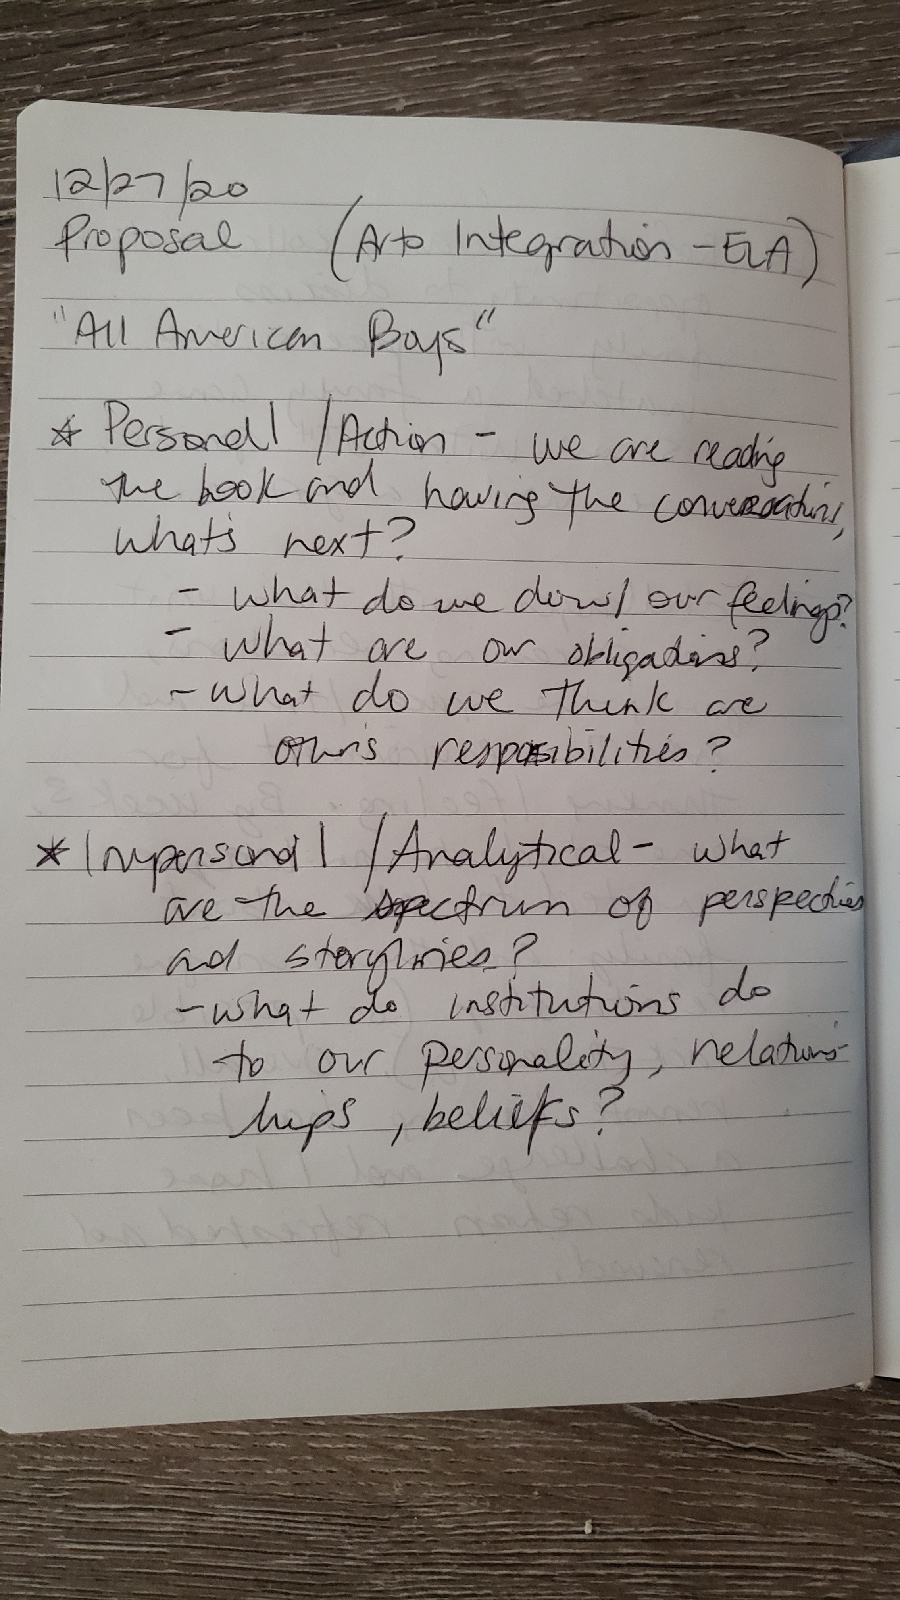 12/27/20
Proposal (Arts Integration - ELA)
"All American Boys"
* Personal / Action - we are reading
the book and having the conversations,
what's next?
- what do we do w/ our feelings?
- what are our obligations?
- what do we think are
others responsibilities?
* Impersonal / Analytical - what
are the spectrum of perspectives
and storylines?
- what do institutions do
to our personality, relations-
hips, beliefs?